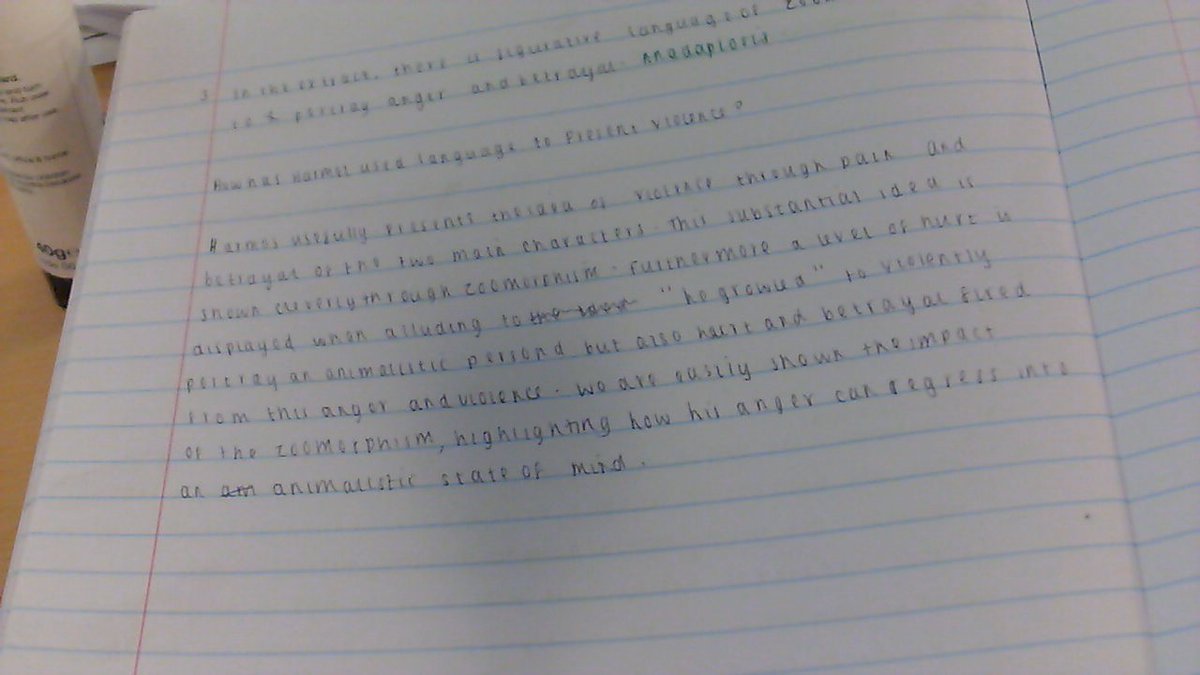 3 in the extract, there is figurative language of
to & portray anger and betrayal. Anadaplosis
How has Harmel used language to Present violence?
Harmes usefully Presents the idea of violence through pain and
betrayal of the two main characters. This substantial idea is
shown cleverly through zoomorphism. Furthermore a level of hurt is
displayed when alluding to the idea "he growled" to violently
portray an animalistic persona but also hurt and betrayal fired
from this anger and violence. We are easily shown the impact
of the zoomorphism, highlighting how his anger can regress into
an am animalistic state of mind.